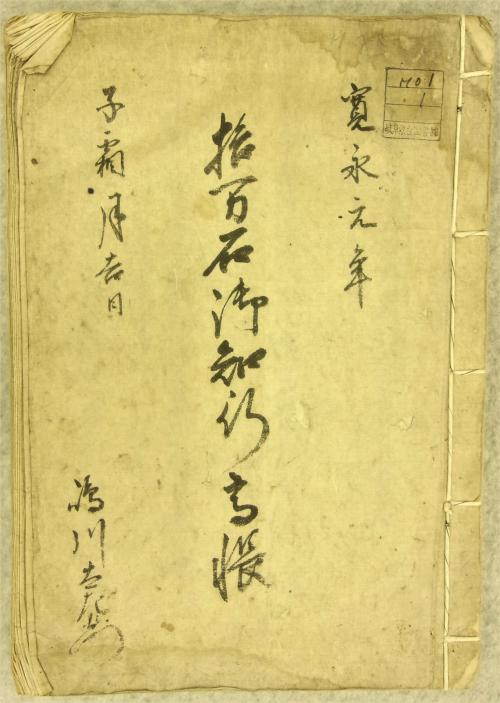 寛永元年
拾万石御知行高帳
子霜月吉日
川
M01
1